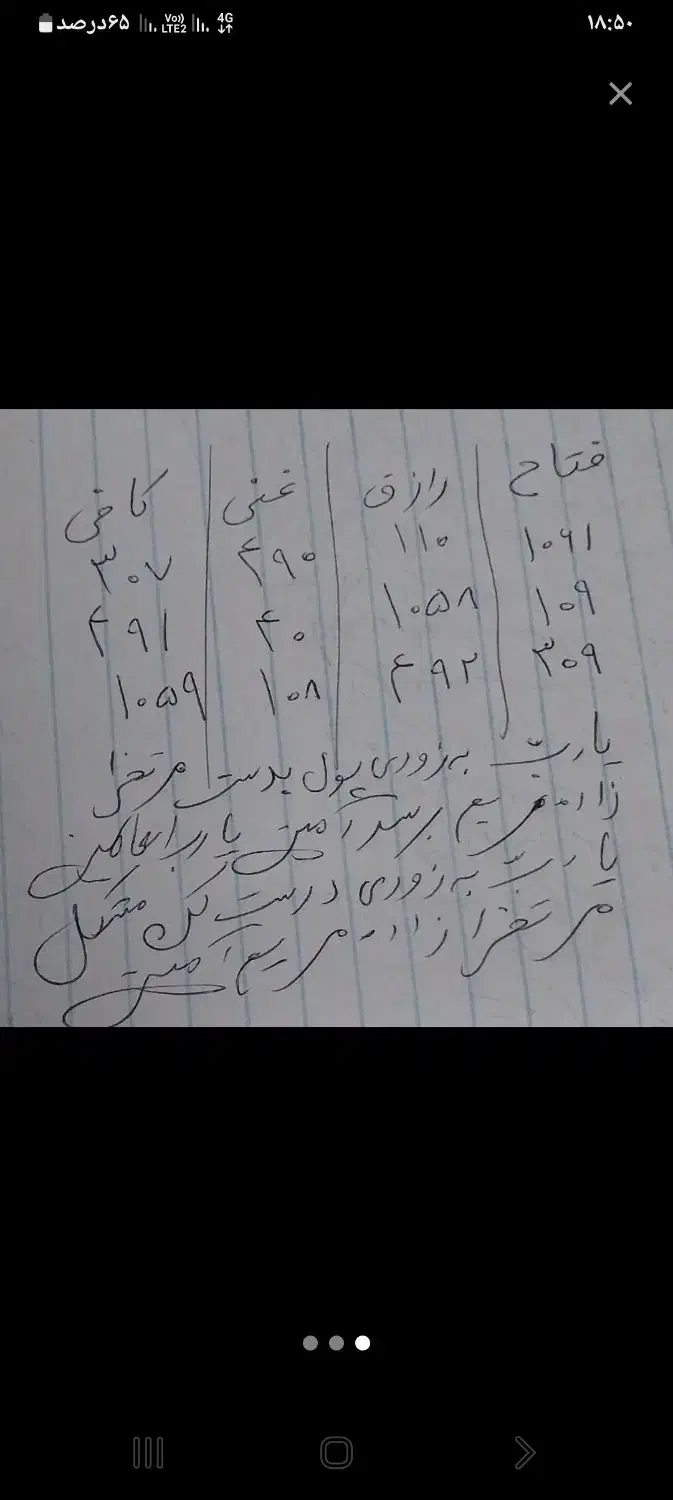 ۱۸:۵۰ 4G Vo)) LTE2 ۶۵درصد
فتاح رازق غنی کافی
۱۰۶۱ ۱۱۰ ۴۹۰ ۳۰۷
۱۰۹ ۱۰۵۸ ۴۰ ۴۹۱
۳۰۹ ۴۹۲ ۱۰۸ ۱۰۵۹
یارب به زودی پول بدست مرتضا
زاده مریم برسد آمین یا رب العالمین
یارب به زودی درست کن مشکل
مرتضا زاده مریم آمین